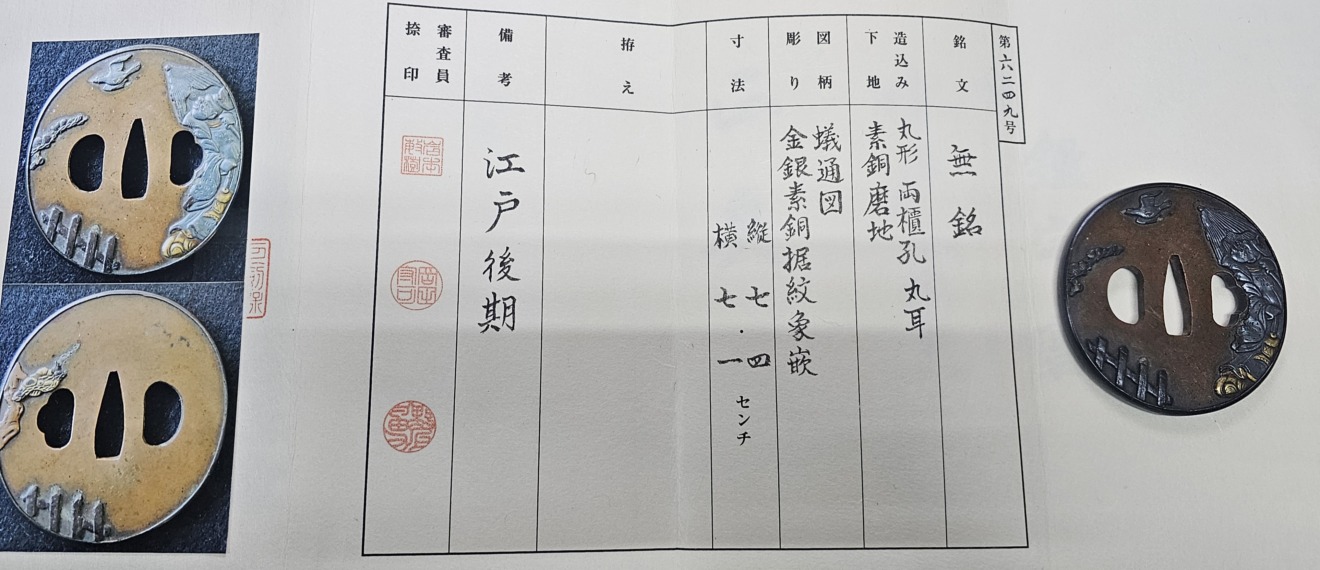 第六二四九号
銘文
無銘
造込み
下地
丸形 両櫃孔 丸耳
素銅磨地
図柄
彫り
蟻通図
金銀素銅据紋象嵌
寸法
縦 七・四 センチ
横 七・一
拵え
備考
江戸後期
審査員
捺印